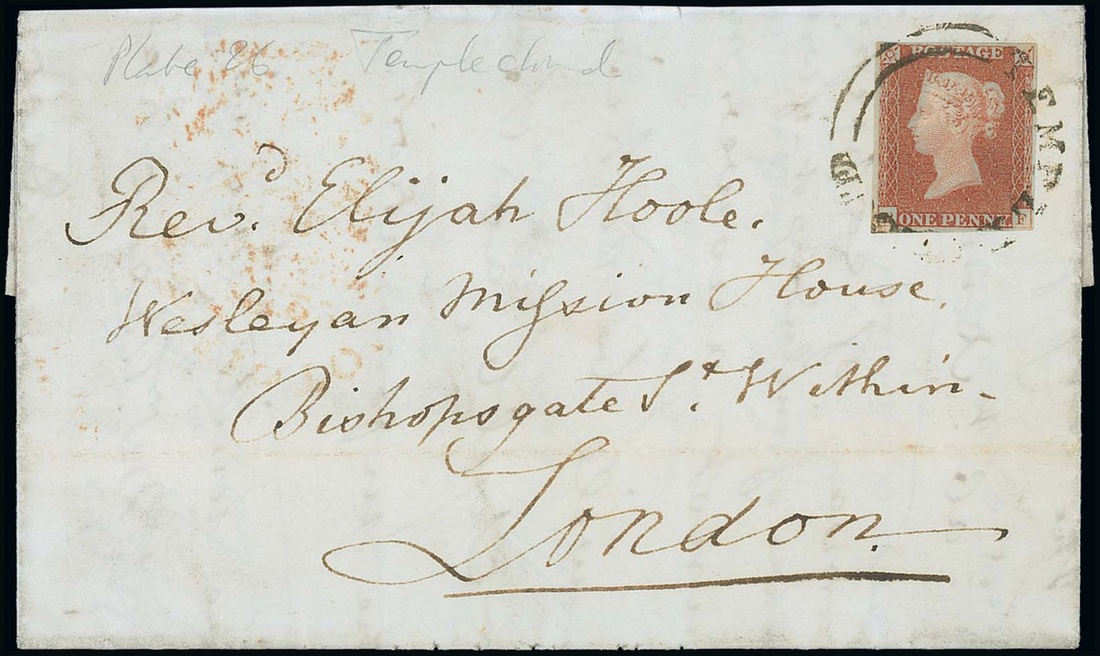 Plate 26 Templecloud
POSTAGE
ONE PENNY
F
TEMPLE CLOUD
Revd. Elijah Hoole.
Wesleyan Mission House.
Bishopsgate St. Within-
London.